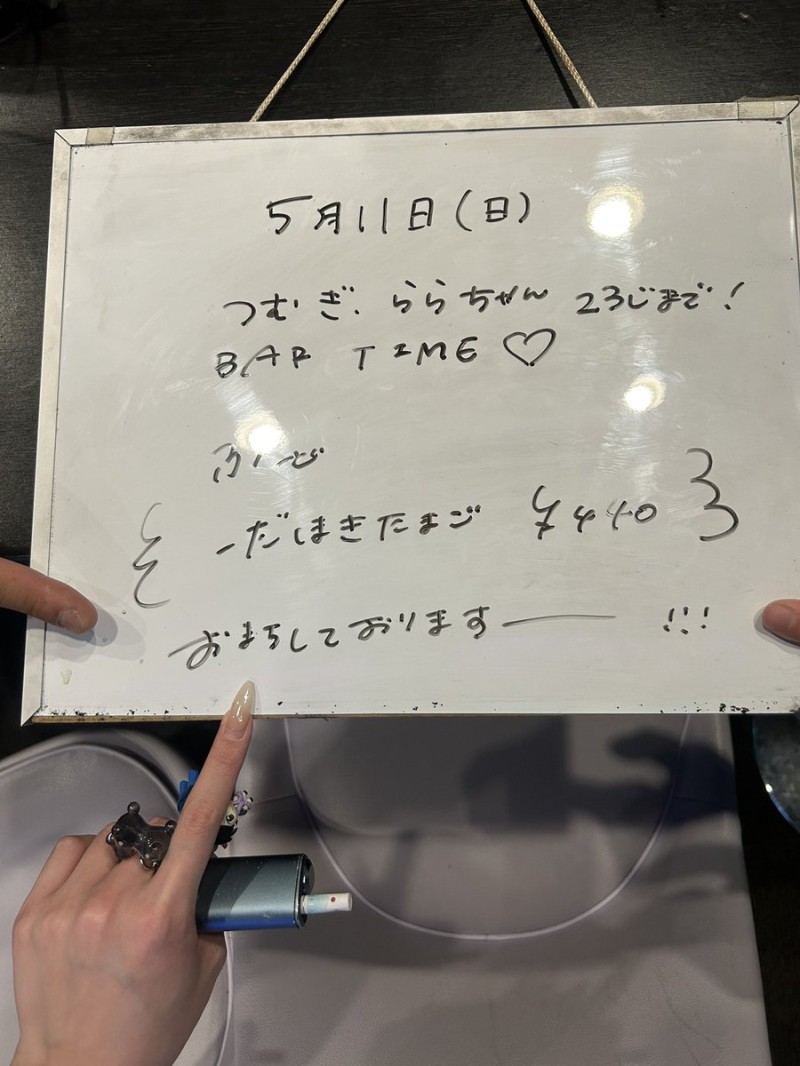 5月11日(日)
つむぎ、ららちゃん 23じまで!
BAR TIME♡
ふーど
-だしまきたまご ¥440
おまちしておりますー!!!